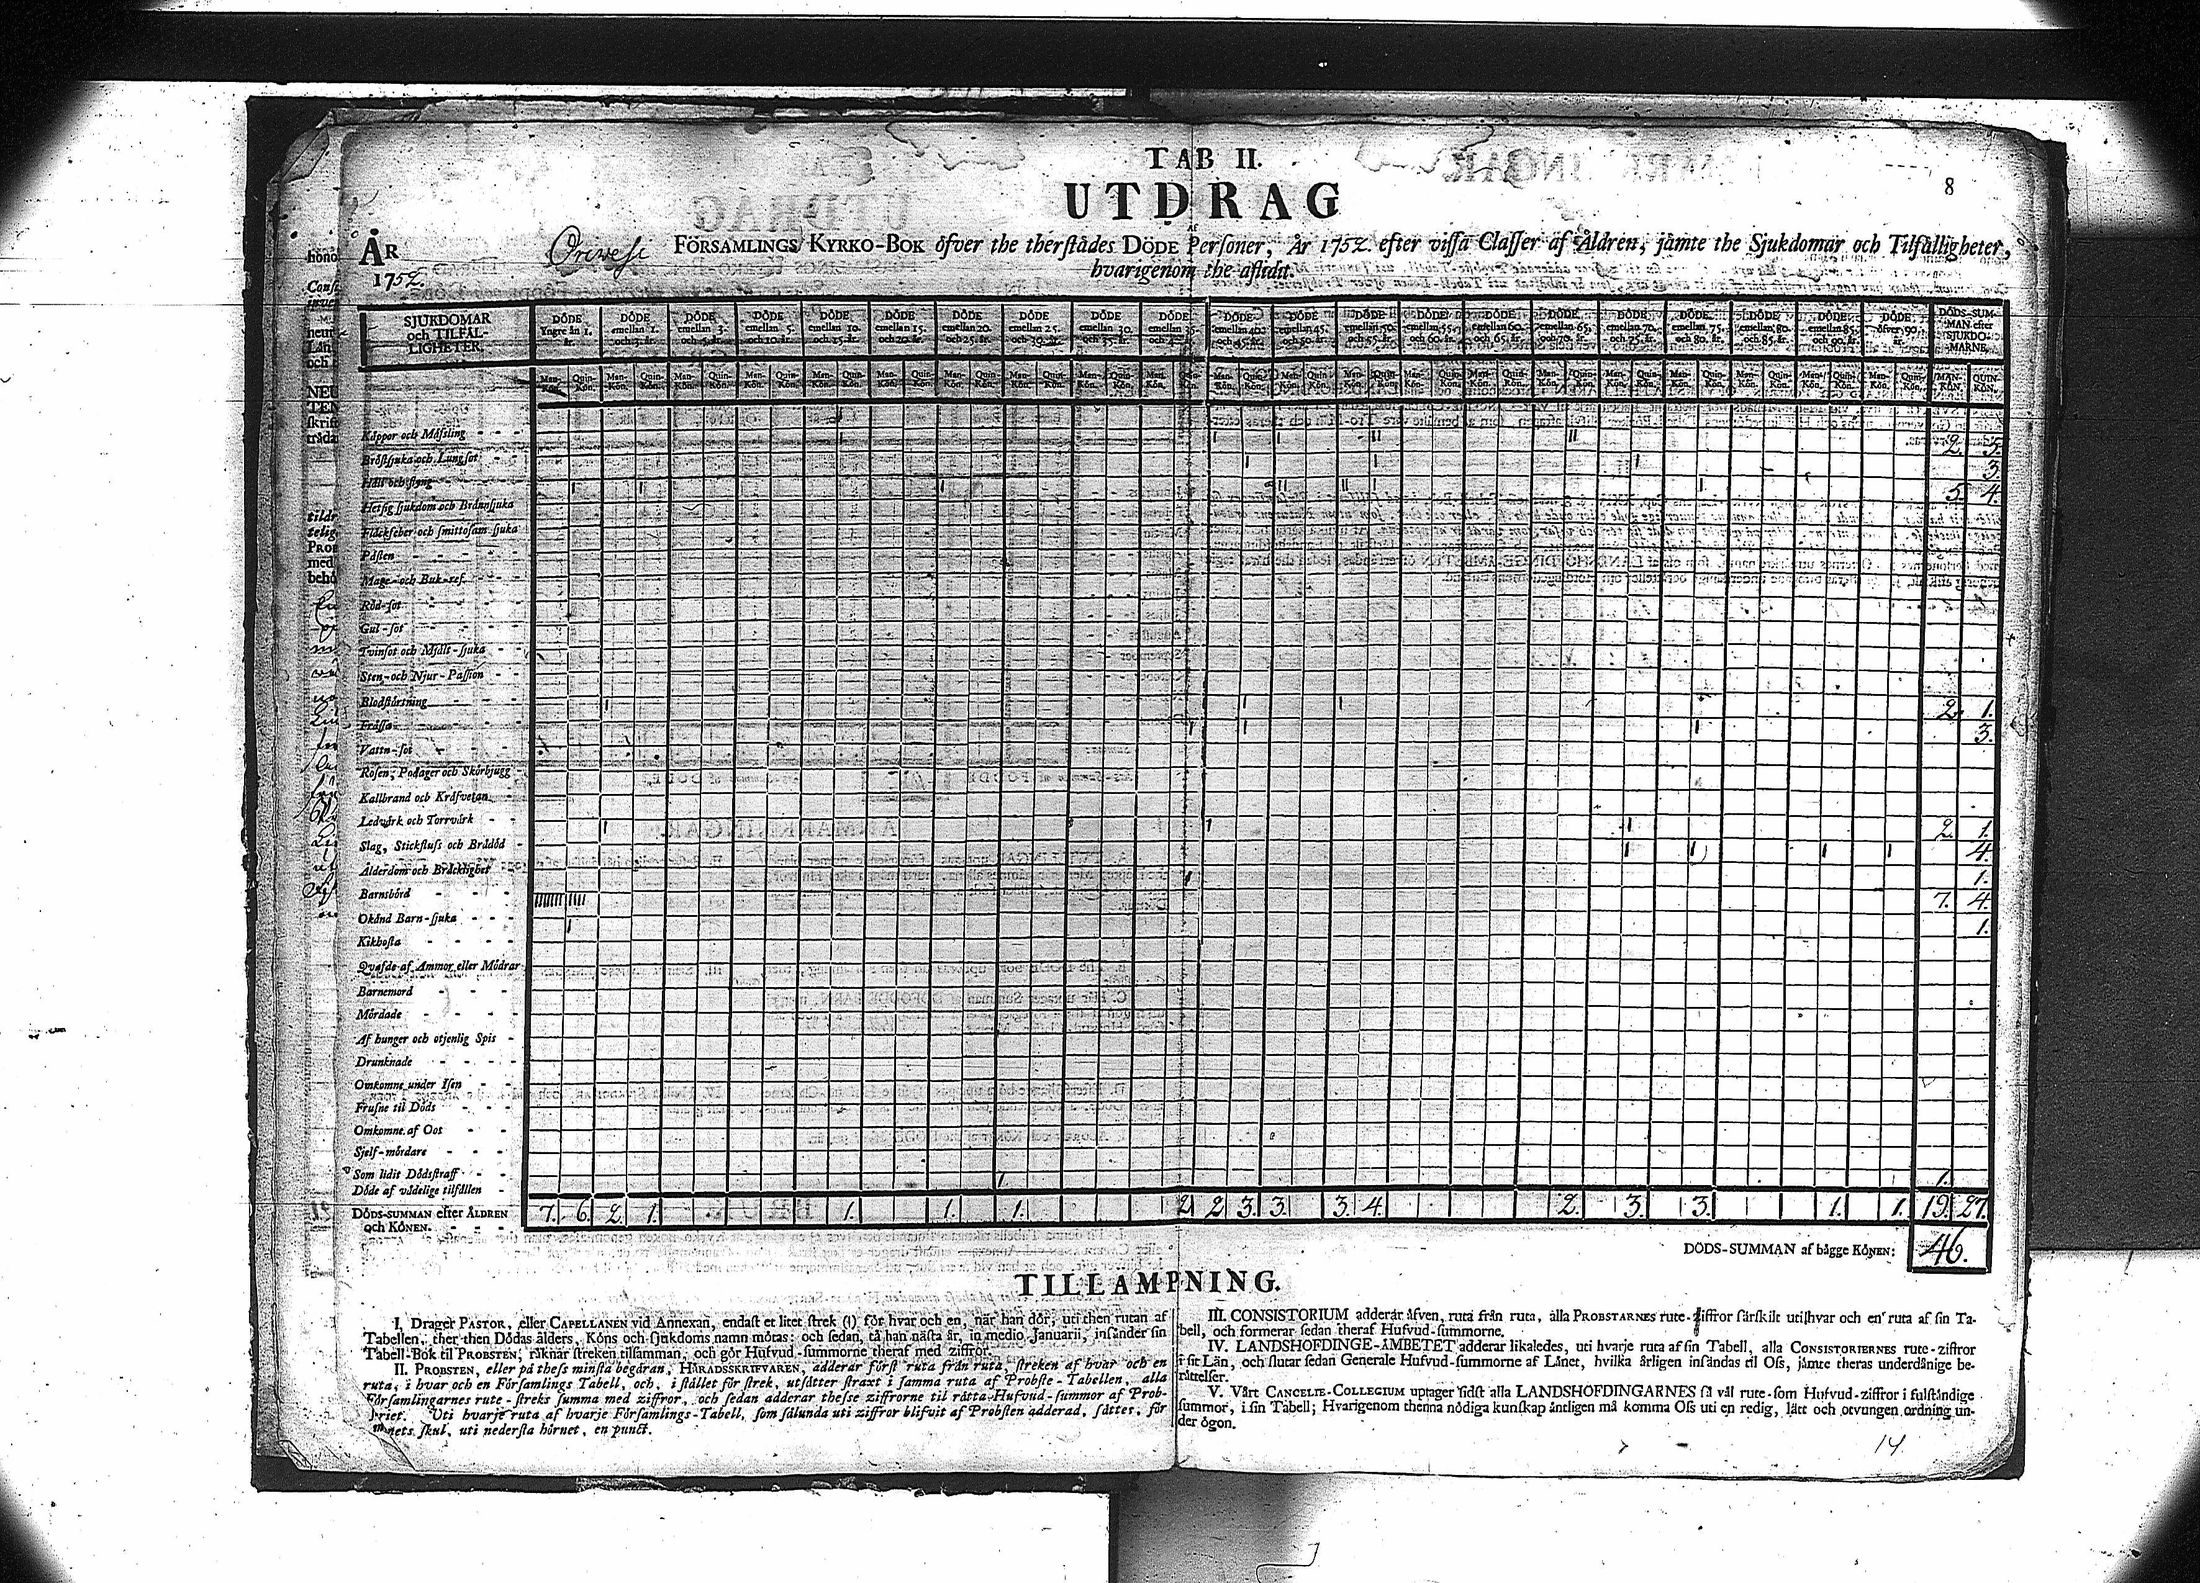 TAB II.
UTDRAG
8
AF
ÅR
1752.
Orivesi FÖRSAMLINGS KYRKO-BOK öfver the therstådes DÖDE Personer, År 1752. efter vissa Classer af Åldren, jämte the Sjukdomar och Tilfälligheter,
hvarigenom the aflidit.
SJUKDOMAR och TILFÄLLIGHETER.
DÖDE Yngre än 1. år.
DÖDE emellan 1. och 3. år.
DÖDE emellan 3. och 5. år.
DÖDE emellan 5. och 10. år.
DÖDE emellan 10. och 15. år.
DÖDE emellan 15. och 20. år.
DÖDE emellan 20. och 25. år.
DÖDE emellan 25. och 30. år.
DÖDE emellan 30. och 35. år.
DÖDE emellan 35.
DÖDE emellan 40. och 45. år.
DÖDE emellan 45. och 50. år.
DÖDE emellan 50. och 55. år.
DÖDE emellan 55. och 60. år.
DÖDE emellan 60. och 65. år.
DÖDE emellan 65. och 70. år.
DÖDE emellan 70. och 75. år.
DÖDE emellan 75. och 80. år.
DÖDE emellan 80. och 85. år.
DÖDE emellan 85. och 90. år.
DÖDE öfver 90. år.
DÖDS-SUMMAN efter SJUKDOMARNE.
Man-Kön. Quin-Kön. Man-Kön. Quin-Kön. Man-Kön. Quin-Kön. Man-Kön. Quin-Kön. Man-Kön. Quin-Kön. Man-Kön. Quin-Kön. Man-Kön. Quin-Kön. Man-Kön. Quin-Kön. Man-Kön. Quin-Kön. Man-Kön. Quin-Kön. Man-Kön. Quin-Kön. Man-Kön. Quin-Kön. Man-Kön. Quin-Kön. Man-Kön. Quin-Kön. Man-Kön. Quin-Kön. Man-Kön. Quin-Kön. Man-Kön. Quin-Kön. Man-Kön. Quin-Kön. Man-Kön. Quin-Kön. Man-Kön. Quin-Kön. Man-Kön. Quin-Kön. MAN-KÖN. QUIN-KÖN.
Koppor och Mässling - - - I I I II II 2. 5.
Bröstsjuka och Lungsot - - I I I 3.
Håll och styng - - - I II I II II I I 5. 4.
Hetsig sjukdom och Brännsjuka
Fläckfeber och smittosam sjuka
Pästen - - - -
Mage- och Buk-ref - - -
Röd-sot - - - -
Gul-sot - - - -
Tvinsot och Mjält-sjuka - -
Sten- och Njur-Passion - -
Blodstörtning - - - I I I 2. 1.
Frässa - - - - I I I 3.
Vattu-sot - - - -
Rosen, Podager och Skörbjugg -
Kallbrand och Kräfvetan - -
Ledvärk och Torrvärk - - I I I 2. 1.
Slag, Stickfluss och Bråddöd - I I I I 4.
Ålderdom och Bräcklighet - - I 1.
Barnsbörd - - - - IIIIIII IIII 7. 4.
Okänd Barn-sjuka - - - I 1.
Kikhosta - - - -
Qväfde af Ammor eller Mödrar
Barnemord - - - -
Mördade - - - -
Af hunger och otjenlig Spis -
Drunknade - - - -
Omkomne under Isen - -
Frusne til Döds - - -
Omkomne af Oos - - -
Sjelf-mördare - - -
Som lidit Dödsstraff - -
Döde af vådelige tilfällen - I 1.
DÖDS-SUMMAN efter ÅLDREN och KÖNEN. - - - 7. 6. 2. 1. 1. 1. 1. 2 2 3. 3. 3. 4. 2. 3. 3. 1. 1. 19. 27.
DÖDS-SUMMAN af bägge KÖNEN: 46.
TILLÄMPNING.
I. Drager PASTOR, eller CAPELLANEN vid Annexan, endast et litet strek (I) för hvar och en, när han dör, uti then rutan af
Tabellen, ther then Dödas ålders, Köns och sjukdoms namn mötas: och sedan, tå han nästa år, in medio Januarii, insänder sin
Tabell-Bok til PROBSTEN, räknar streken tilsamman, och gör Hufvud-summorne theraf med ziffror.
II. PROBSTEN, eller på thess minsta begäran, HÄRADSSKRIFVAREN, adderar först ruta från ruta, streken af hvar och en
ruta, i hvar och en Församlings Tabell, och, i stället för strek, utsätter straxt i samma ruta af Probste-Tabellen, alla
Församlingarnes rute-streks summa med ziffror, och sedan adderar thesse ziffrorne til rätta Hufvud-summor af Prob-
steriet. Uti hvarje ruta af hvarje Församlings-Tabell, som sålunda uti ziffror blifvit af Probsten adderad, sättes, för
minnets skul, uti nedersta hörnet, en punct.
III. CONSISTORIUM adderar äfven, ruta från ruta, alla PROBSTARNES rute-ziffror särskilt uti hvar och en ruta af sin Ta-
bell, och formerar sedan theraf Hufvud-summorne.
IV. LANDSHÖFDINGE-ÄMBETET adderar likaledes, uti hvarje ruta af sin Tabell, alla CONSISTORIERNES rute-ziffror
i sit Län, och slutar sedan Generale Hufvud-summorne af Länet, hvilka årligen insändas til Oss, jämte theras underdånige be-
rättelser.
V. Vårt CANCELIE-COLLEGIUM uptager sidst alla LANDSHÖFDINGARNES så väl rute-som Hufvud-ziffror i fulständige
summor, i sin Tabell; Hvarigenom thenna nödiga kunskap äntligen må komma Oss uti en redig, lätt och otvungen ordning un-
der ögon.
14